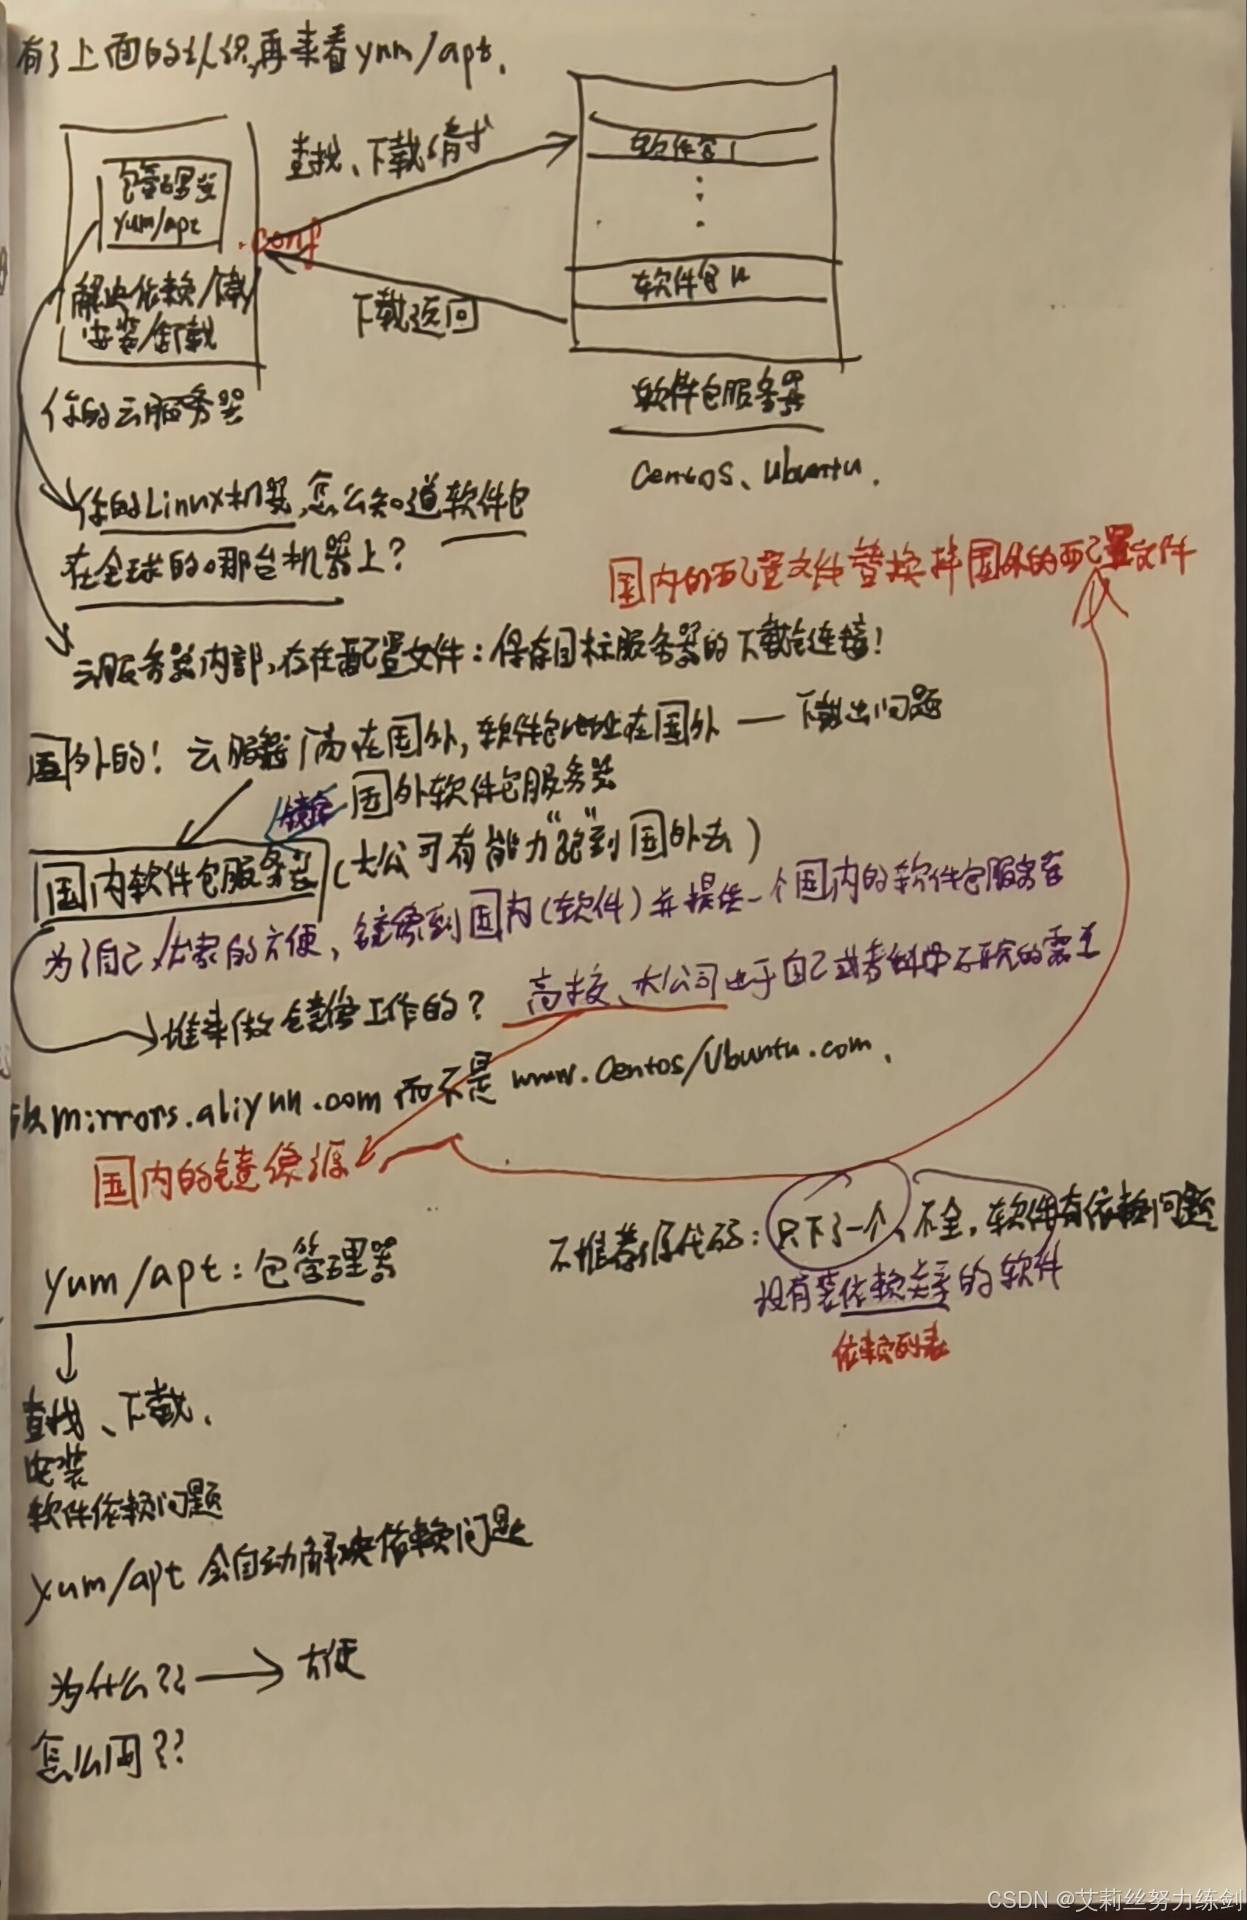 有了上面的认识,再来看yum/apt.
包管理器
yum/apt
解决依赖/下载/
安装/卸载
你的云服务器
.conf
查找、下载请求
下载返回
软件包1
软件包n
软件包服务器
Centos、Ubuntu.
你的Linux机器,怎么知道软件包
在全球的哪台机器上?
国内的配置文件替换掉国外的配置文件
云服务器内部,存在配置文件:保存目标服务器的下载链接!
国外的! 云服务器 在国外,软件包地址在国外 — 下载出问题
镜像 国外软件包服务器
国内软件包服务器(大公司有能力"跑"到国外去)
为了自己/大家的方便,镜像到国内(软件)并提供一个国内的软件包服务器
谁来做镜像工作的? 高校、大公司出于自己或者 的需求
mirrors.aliyun.com而不是www.Centos/Ubuntu.com.
国内的镜像源
不推荐源代码:只下了一个、不全,软件有依赖问题
没有装依赖关系的软件
依赖列表
yum/apt:包管理器
查找、下载、
安装
软件依赖问题
yum/apt 全自动解决依赖问题
为什么?? 方便
怎么用??
CSDN @艾莉丝努力练剑